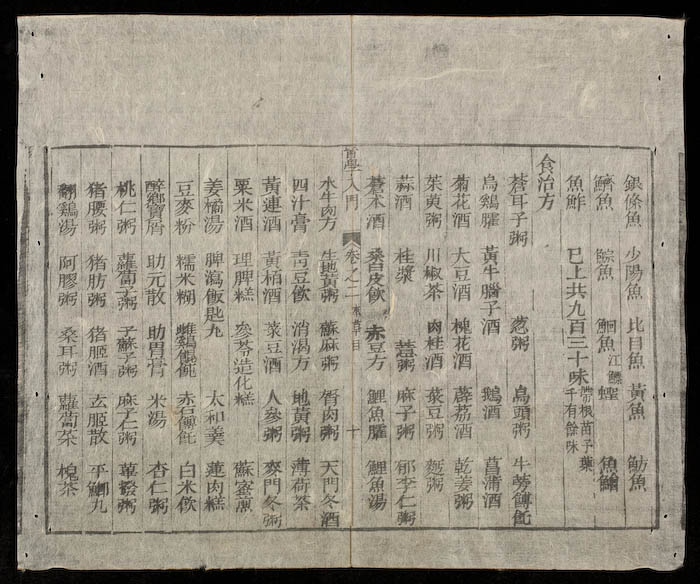 銀條魚 少陽魚 比目魚 黃魚 魴魚
鱭魚 鯮魚 鮰魚 江鰾 蟶 魚鱠
魚鮓 已上共九百三十味 帶根苗子葉千有餘味
食治方
蒼耳子粥 葱粥 烏頭粥 牛蒡餺飥
烏鷄臛 黃牛腦子酒 鵝酒 菖蒲酒
菊花酒 大豆酒 槐花酒 薜荔酒 乾姜粥
茱萸粥 川椒茶 肉桂酒 菉豆酒 麪粥
蒜酒 桂漿 麻子粥 郁李仁粥
蒼朮酒 桑白皮飲 赤豆方 鯉魚臛 鯉魚湯
醫學入門 卷之二 本草目 十
水牛肉方 生地黃粥 蘇麻粥 肉粥 天門冬酒
四汁膏 靑豆飲 消渴方 地黃粥 薄荷茶
黃連酒 黃栢酒 菉豆酒 人參粥 麥門冬粥
粟米酒 理脾糕 參苓造化糕 蘇蜜煎
姜橘湯 脾瀉飯匙丸 太和羹 蓮肉糕
豆麥粉 糯米糊 雌鷄餛飩 赤石餺飥 白米飲
醉鄉寶屑 助元散 助胃膏 米湯 杏仁粥
桃仁粥 蘿蔔子粥 子蘇子粥 麻子仁粥 蓽撥粥
猪腰粥 猪肪粥 猪脏酒 玄脏散 平鯽丸
鷄湯 阿膠粥 桑耳粥 蘿蔔茶 槐茶